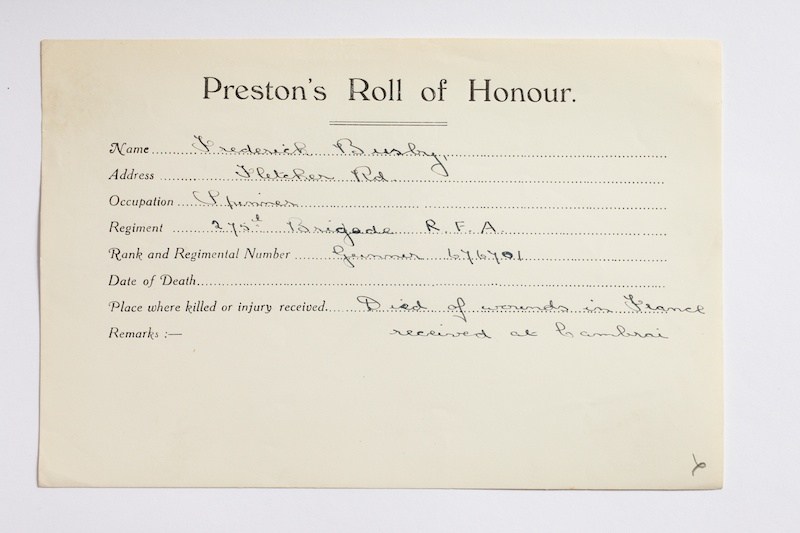 Preston's Roll of Honour.
Name Frederick Busby,
Address Fletcher Rd
Occupation Spinner
Regiment 275th Brigade R. F. A.
Rank and Regimental Number Gunner 676701
Date of Death
Place where killed or injury received Died of wounds in France
Remarks :— received at Cambrai